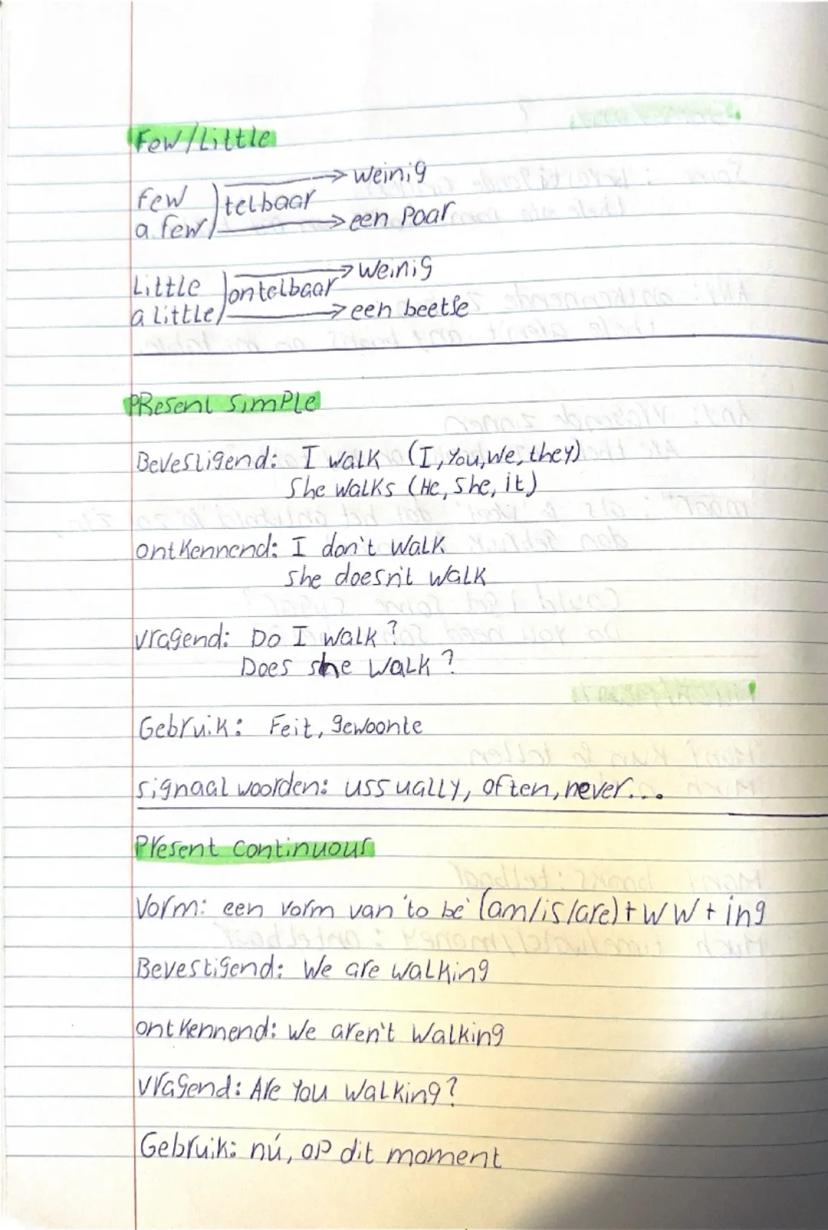 Few/Little
few
a few
telbaar
weinig
een paar
Little
a little
ontelbaar
weinig
een beetje
Present simple
Bevestigend: I walk (I, you, we, they)
She walks (He, She, it)
ontkennend: I don't walk
she doesn't walk
vragend: Do I walk?
Does she walk?
Gebruik: Feit, gewoonte
signaalwoorden: ussually, often, never...
Present continuous
Vorm: een vorm van 'to be' (am/is/are) + ww + ing
Bevestigend: We are walking
ontkennend: We aren't walking
vragend: Are you walking?
Gebruik: nú, op dit moment